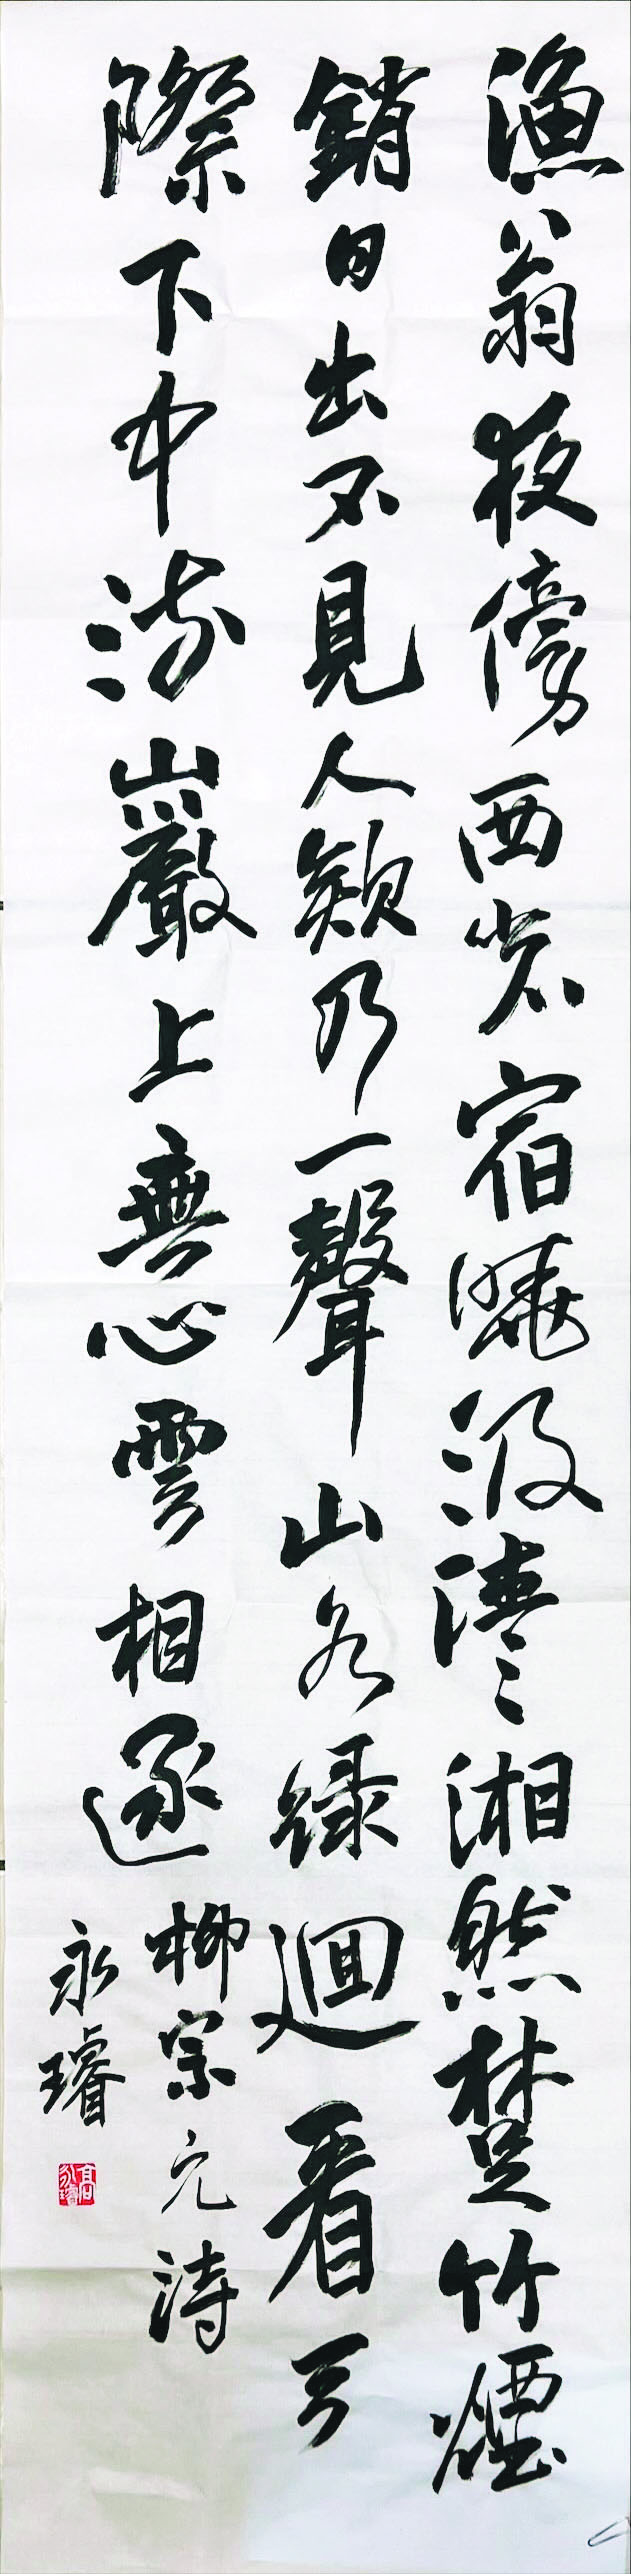 漁翁夜傍西岩宿曉汲清湘然楚竹煙
銷日出不見人欸乃一聲山水綠迴看天
際下中流巖上無心雲相逐
柳宗元詩
永璿